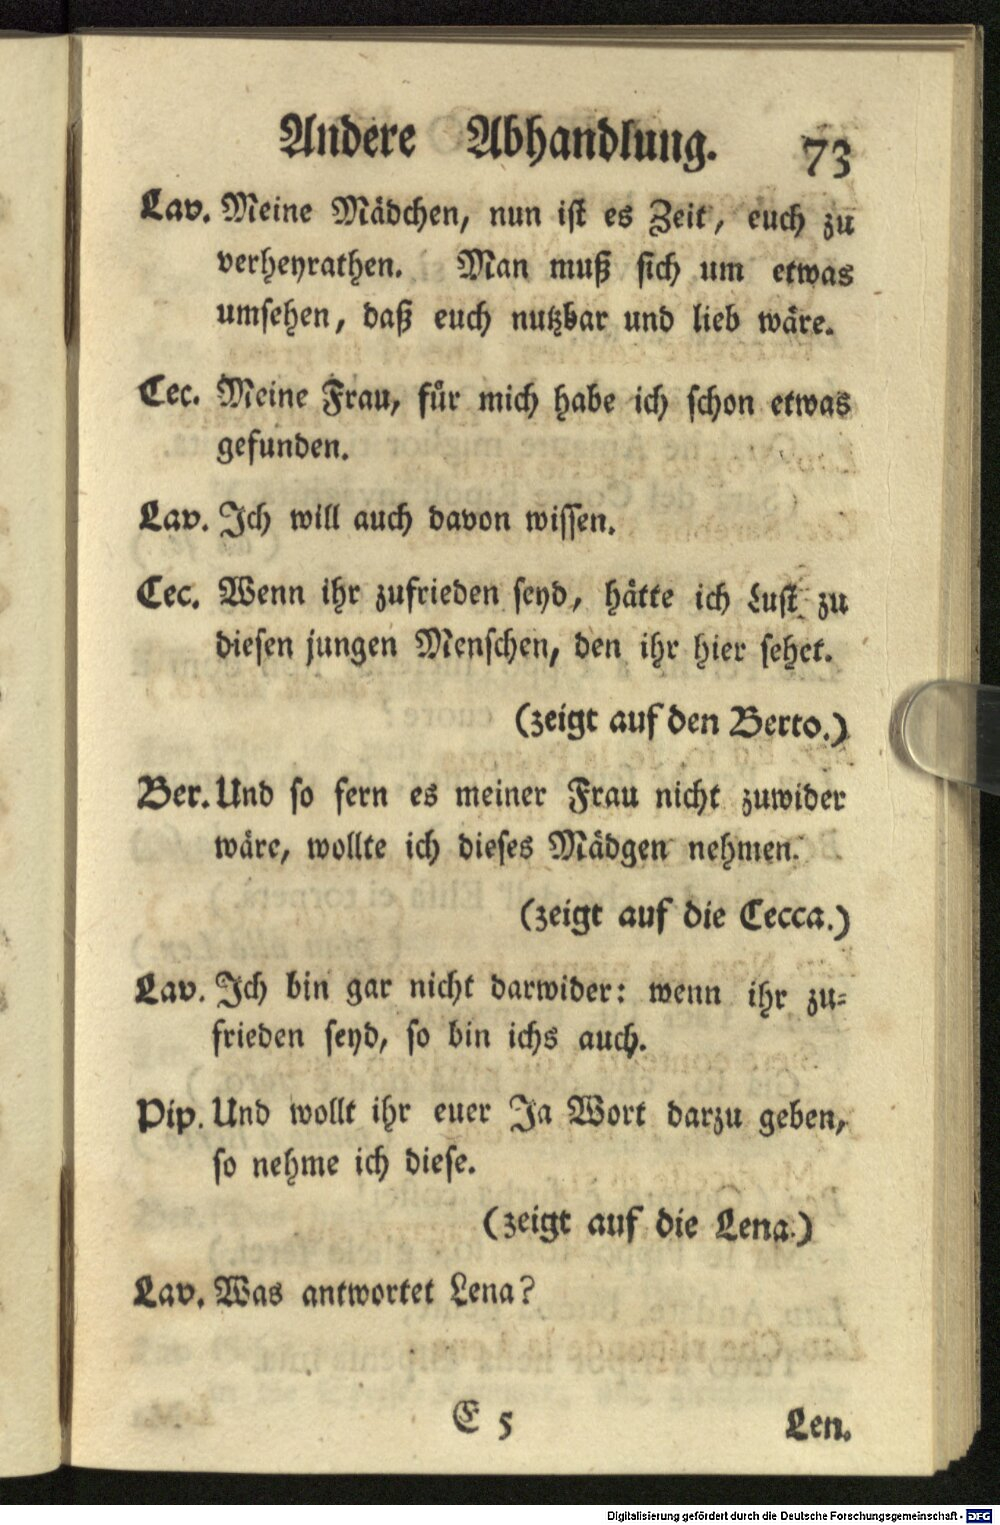 Andere Abhandlung. 73
Lav. Meine Mädchen, nun ist es Zeit, euch zu
verheyrathen. Man muß sich um etwas
umsehen, daß euch nutzbar und lieb wäre.
Cec. Meine Frau, für mich habe ich schon etwas
gefunden.
Lav. Ich will auch davon wissen.
Cec. Wenn ihr zufrieden seyd, hätte ich Lust zu
diesen jungen Menschen, den ihr hier sehet.
(zeigt auf den Berto.)
Ber. Und so fern es meiner Frau nicht zuwider
wäre, wollte ich dieses Mädgen nehmen.
(zeigt auf die Cecca.)
Lav. Ich bin gar nicht darwider: wenn ihr zu-
frieden seyd, so bin ichs auch.
Pip. Und wollt ihr euer Ja Wort darzu geben,
so nehme ich diese.
(zeigt auf die Lena.)
Lav. Was antwortet Lena?
E 5 Len.
Digitalisierung gefördert durch die Deutsche Forschungsgemeinschaft - DFG